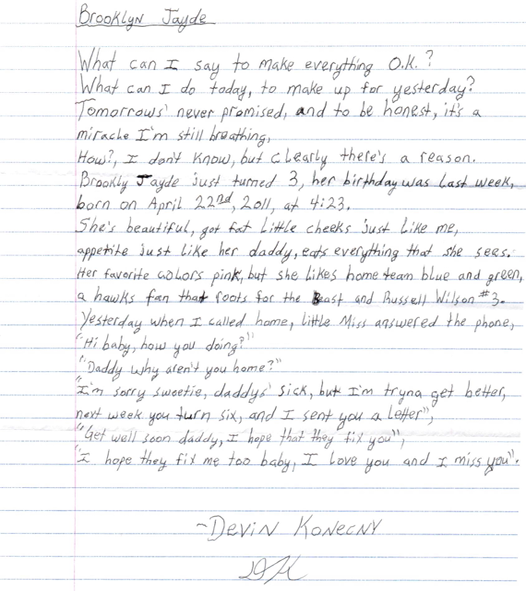 Brooklyn Jayde
What can I say to make everything O.K.?
What can I do today, to make up for yesterday?
Tomorrows' never promised, and to be honest, it's a
miracle I'm still breathing,
How?, I don't know, but clearly there's a reason.
Brookly Jayde just turned 3, her birthday was last week,
born on April 22nd, 2011, at 4:23.
She's beautiful, got fat little cheeks just like me,
appetite just like her daddy, eats everything that she sees.
Her favorite colors pink, but she likes home team blue and green,
a hawks fan that roots for the Beast and Russell Wilson #3.
Yesterday when I called home, little Miss answered the phone,
"Hi baby, how you doing?"
"Daddy why aren't you home?"
"I'm sorry sweetie, daddys' sick, but I'm tryna get better,
next week you turn six, and I sent you a letter",
"Get well soon daddy, I hope that they fix you",
"I hope they fix me too baby, I love you and I miss you".
~Devin Konecny